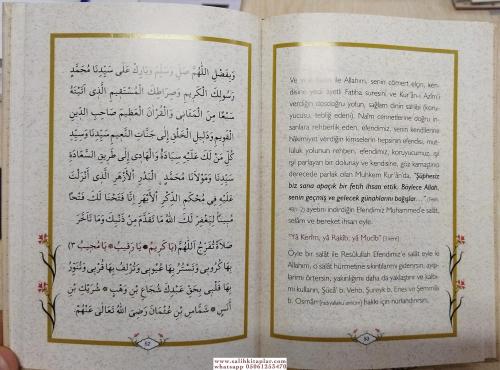 وَبِفَضْلِ اللّٰهُمَّ صَلِّ وَسَلِّمْ وَبَارِكْ عَلَى سَيِّدِنَا مُحَمَّدٍ
رَسُولِكَ الْكَرِيمِ وَصِرَاطِكَ الْمُسْتَقِيمِ الَّذِى اٰتَيْتَهُ
سَبْعًا مِنَ الْمَثَانِى وَالْقُرْاٰنَ الْعَظِيمَ صَاحِبِ الدِّينِ
الْقَوِيمِ وَدَلِيلِ الْخَلْقِ إِلَى جَنَّاتِ النَّعِيمِ سَيِّدِنَا وَسَيِّدِ
كُلِّ مَنْ لَكَ عَلَيْهِ سِيَادَةٌ وَالْهَادِى إِلَى طَرِيقِ السَّعَادَةِ
سَيِّدِنَا وَمَوْلَانَا مُحَمَّدٍ الْبَدْرِ الْأَزْهَرِ الَّذِى أَنْزَلْتَ
عَلَيْهِ فِى مُحْكَمِ الذِّكْرِ الْأَبْهَرِ إِنَّا فَتَحْنَا لَكَ فَتْحًا
مُبِينًا لِيَغْفِرَ لَكَ اللّٰهُ مَا تَقَدَّمَ مِنْ ذَنْبِكَ وَمَا تَأَخَّرَ
صَلَاةً تُفَرِّجُ اللّٰهُمَّ (يَا كَرِيمُ * يَا رَقِيبُ * يَا مُجِيبُ ٣)
بِهَا كُرُوبِى وَتَسْتُرُ بِهَا عُيُوبِى وَتُزْلِفُ بِهَا قُرْبِى وَتُنَوِّرُ
بِهَا قَلْبِى بِحَقِّ عَبْدِكَ شُجَاعِ بْنِ وَهْبٍ * شَرِيكِ بْنِ
أَنَسٍ * شَمَّاسِ بْنِ عُثْمَانَ رَضِىَ اللّٰهُ تَعَالَى عَنْهُمْ
52
Ve ile Allahım, senin cömert elçin, ken-
disine yedi âyetli Fatiha suresini ve Kur'ân-ı Azîm'i
verdiğin dosdoğru yolun, sağlam dinin sahibi (koru-
yucusu, tebliğ edeni), Naîm cennetlerine doğru in-
sanlara rehberlik eden, efendimiz, senin kendilerine
hâkimiyet verdiğin kimselerin hepsinin efendisi, mut-
luluk yolunun rehberi, efendimiz, koruyucumuz, ışıl
ışıl parlayan bir dolunay ve kendisine, göz kamaştırıcı
derecede parlak olan Muhkem Kur'ân'da, "Şüphesiz
biz sana apaçık bir fetih ihsan ettik. Böylece Allah,
senin geçmiş ve gelecek günahlarını bağışlar..."
ayetini indirdiğin Efendimiz Muhammed'e salât,
selâm ve bereket ihsan eyle.
"Yâ Kerîm, yâ Rakîb, yâ Mucîb"
Öyle bir salât ile Resûlullah Efendimiz'e salât eyle ki
Allahım, o salât hürmetine sıkıntılarımı gideresin, ayıp-
larımı örtesin, yakınlığımı daha da yaklaştırır ve kalbi-
mi kulların, Şücâ' b. Vehb, Şureyk b. Enes ve Şemmâs
b. Osmân hakkı için nurlandırırsın.
53
www.salihkitaplar.com
whatsapp 05061253470